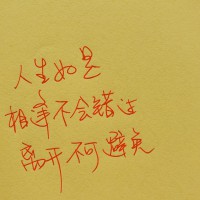 人生如是
相逢不会错过
离开不可避免